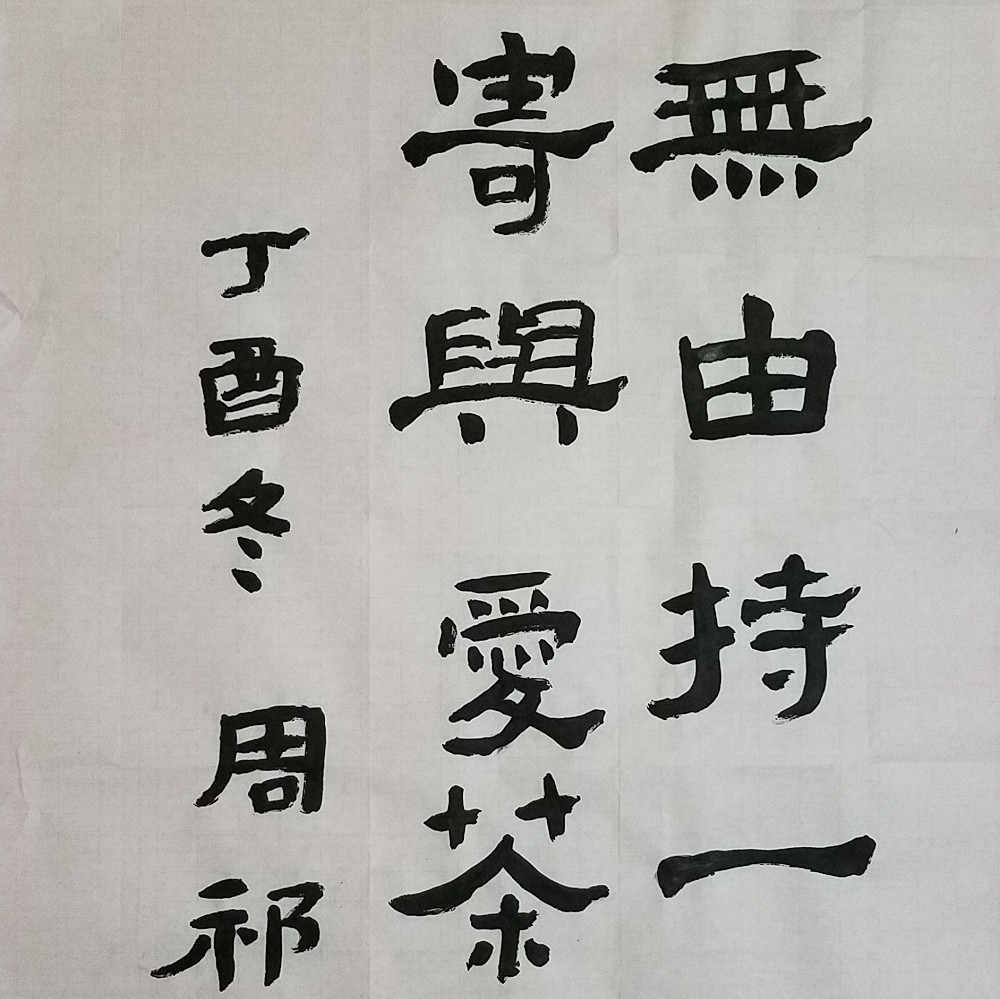 無由持一
寄與愛茶
丁酉冬 周祁